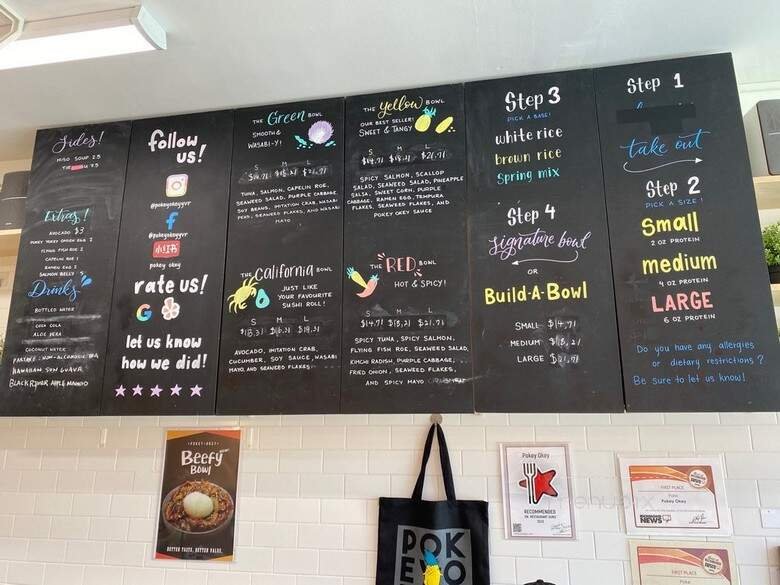 Sides!
MISO SOUP 2.5
Extras!
AVOCADO $3
POKEY OKEY ONION EGG 2
FLYING FISH ROE 2
CAPELIN ROE 1
RAMEN EGG 2
SALMON BELLY 5
Drinks
BOTTLED WATER
COCA COLA
ALOE VERA
COCONUT WATER
HAWAIIAN SUN GUAVA
follow
us!
@pokeyokeyyvr
@pokeyokeyyvr
小红书
pokey okey
rate us!
G
let us know
how we did!
THE Green BOWL
SMOOTH &
WASABI-Y!
S M L
TUNA, SALMON, CAPELIN ROE,
SEAWEED SALAD, PURPLE CABBAGE,
SOY BEANS, IMITATION CRAB, WASABI
PEAS, SEAWEED FLAKES, AND WASABI
MAYO
THE California BOWL
JUST LIKE
YOUR FAVOURITE
SUSHI ROLL!
S M L
AVOCADO, IMITATION CRAB,
CUCUMBER, SOY SAUCE, WASABI
MAYO, AND SEAWEED FLAKES
THE Yellow BOWL
OUR BEST SELLER!
SWEET & TANGY
S M L
$14.71 $18.21 $21.71
SPICY SALMON, SCALLOP
SALAD, SEAWEED SALAD, PINEAPPLE
SALSA, SWEET CORN, PURPLE
CABBAGE, RAMEN EGG, TEMPURA
FLAKES, SEAWEED FLAKES, AND
POKEY OKEY SAUCE
THE RED BOWL
HOT & SPICY!
S M L
$14.71 $18.21 $21.71
SPICY TUNA, SPICY SALMON,
FLYING FISH ROE, SEAWEED SALAD,
KIMCHI RADISH, PURPLE CABBAGE,
FRIED ONION, SEAWEED FLAKES,
AND SPICY MAYO
Step 3
PICK A BASE!
white rice
brown rice
Spring mix
Step 4
signature bowl
OR
Build-A-Bowl
SMALL $14.71
MEDIUM $18.21
LARGE $21.71
Step 1
take out
Step 2
PICK A SIZE!
Small
2 OZ PROTEIN
medium
4 OZ PROTEIN
LARGE
6 OZ PROTEIN
Do you have any allergies
or dietary restrictions?
Be sure to let us know!
POKEY OKEY
Beefy
Bowl
BETTER TASTE, BETTER VALUE
POK
EYO
Pokey Okey
RECOMMENDED
FIRST PLACE
Poke
Pokey Okey
NEWS
FIRST PLACE
Poke